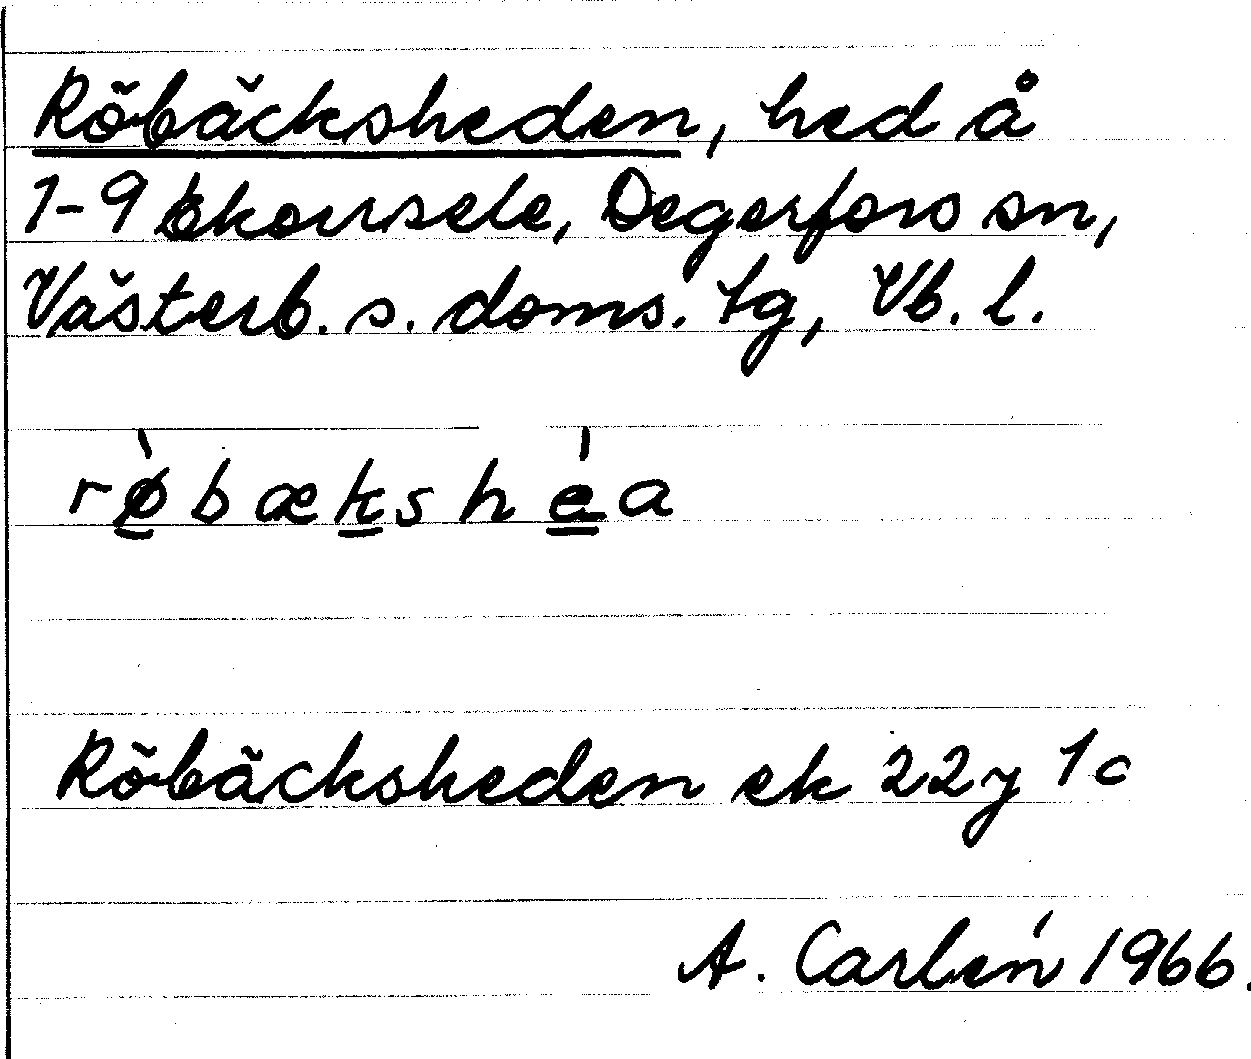 Röbäcksheden, hed å
1-9 Ekorrsele, Degerfors sn,
Västerb. s. doms. tg, Vb. l.
rø̀bækshèa
Röbäcksheden ek 22y 1c
A. Carlén 1966.